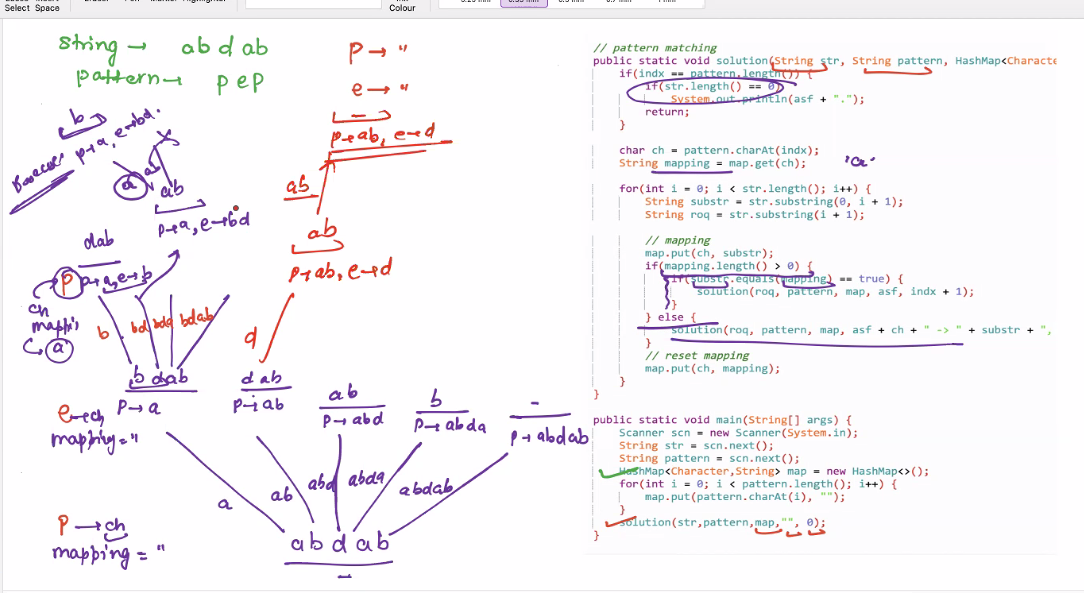 Select
Space
Colour
string → abdab
pattern → pep
p → "
e → "
-
p→ab, e→d
b
p→a, e→bd.
a
ab
ab
p→a, e→bd
ab
ab
p→ab, e→d
dab
p→a, e→b
p
ch
a
b
bd
bda
bdab
d
bdab
p→a
dab
p→ab
ab
p→abd
b
p→abda
-
p→abdab
e→ch
mapping="
a
ab
abd
abda
abdab
p→ch
mapping = "
abdab
-
'a'
// pattern matching
public static void solution(String str, String pattern, HashMap<Characte
if(indx == pattern.length()) {
if(str.length() == 0)
System.out.println(asf + ".");
return;
}
char ch = pattern.charAt(indx);
String mapping = map.get(ch);
for(int i = 0; i < str.length(); i++) {
String substr = str.substring(0, i + 1);
String roq = str.substring(i + 1);
// mapping
map.put(ch, substr);
if(mapping.length() > 0) {
if(substr.equals(mapping) == true) {
solution(roq, pattern, map, asf, indx + 1);
}
} else {
solution(roq, pattern, map, asf + ch + " -> " + substr + ",
}
// reset mapping
map.put(ch, mapping);
}
}
public static void main(String[] args) {
Scanner scn = new Scanner(System.in);
String str = scn.next();
String pattern = scn.next();
HashMap<Character,String> map = new HashMap<>();
for(int i = 0; i < pattern.length(); i++) {
map.put(pattern.charAt(i), "");
}
solution(str,pattern,map,"", 0);
}